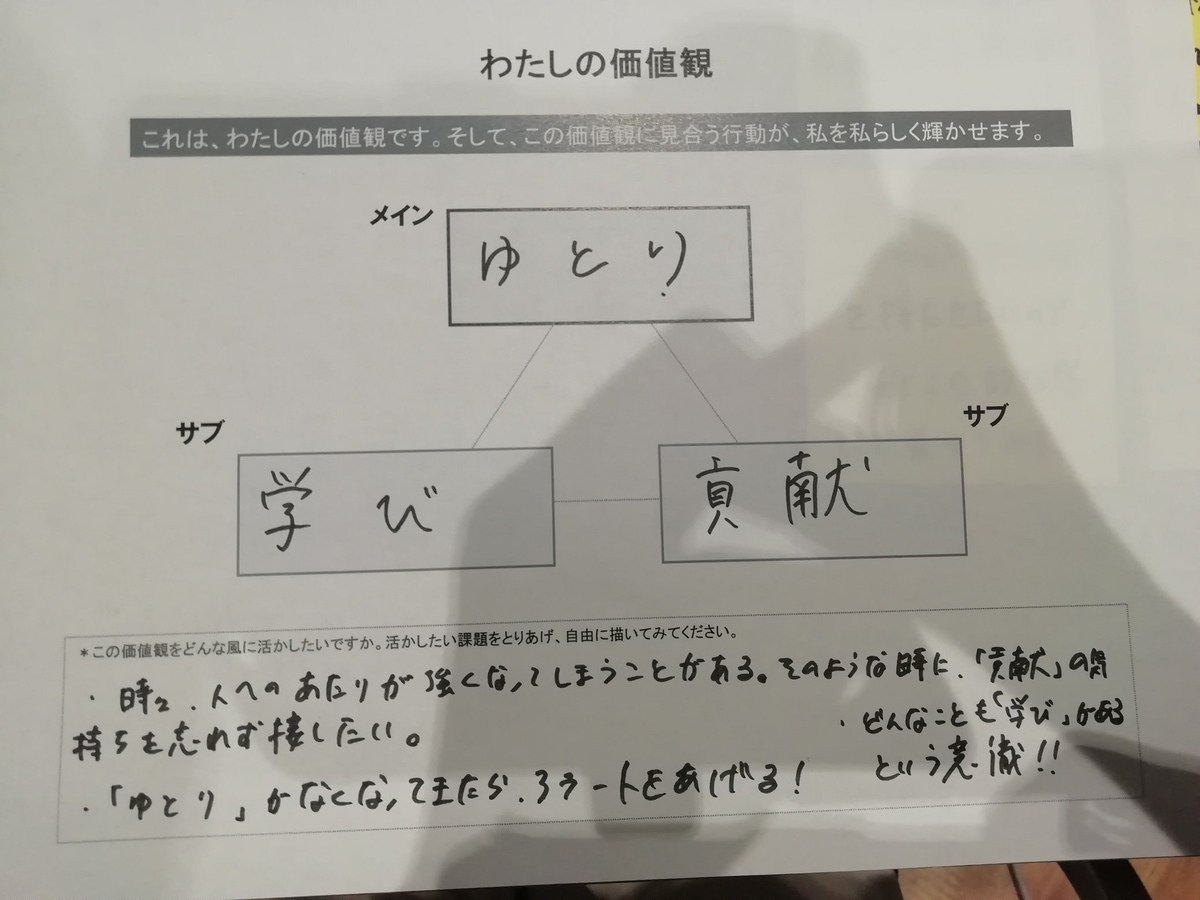 わたしの価値観
これは、わたしの価値観です。そして、この価値観に見合う行動が、私を私らしく輝かせます。
メイン
ゆとり
サブ
サブ
学び
貢献
*この価値観をどんな風に活かしたいですか。活かしたい課題をとりあげ、自由に描いてみてください。
・時々、人へのあたりが強くなってしまうことがある。そのような時に、「貢献」の気
持ちを忘れず接したい。
・「ゆとり」がなくなってきたら、アラートをあげる!
・どんなことも「学び」がある
という意識!!